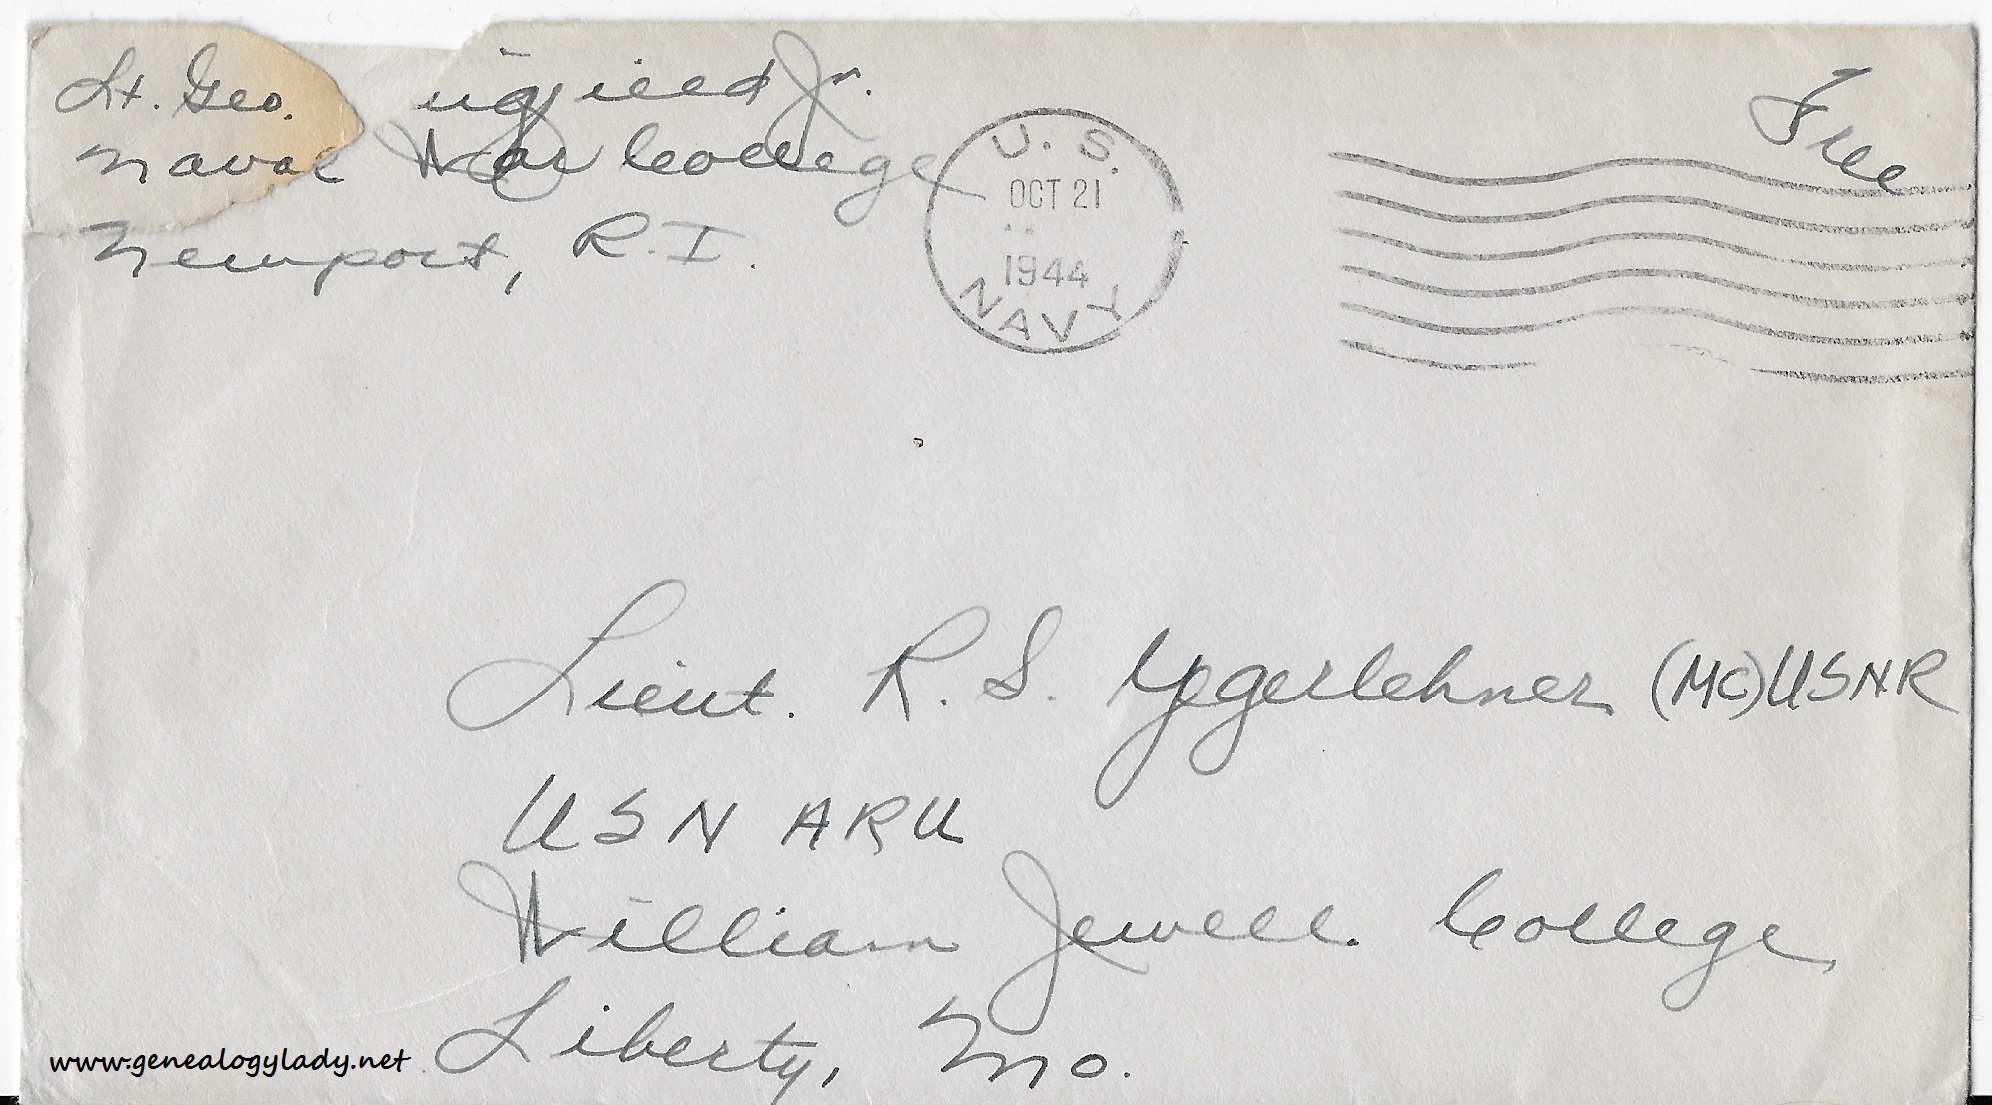 Lt. Geo. Jr.
Naval War College
Newport, R.I.
U.S.
OCT 21
1944
NAVY
Free
Lieut. R. S. Yegerlehner (MC) USNR
USN ARU
William Jewell College,
Liberty, Mo.
www.genealogylady.net